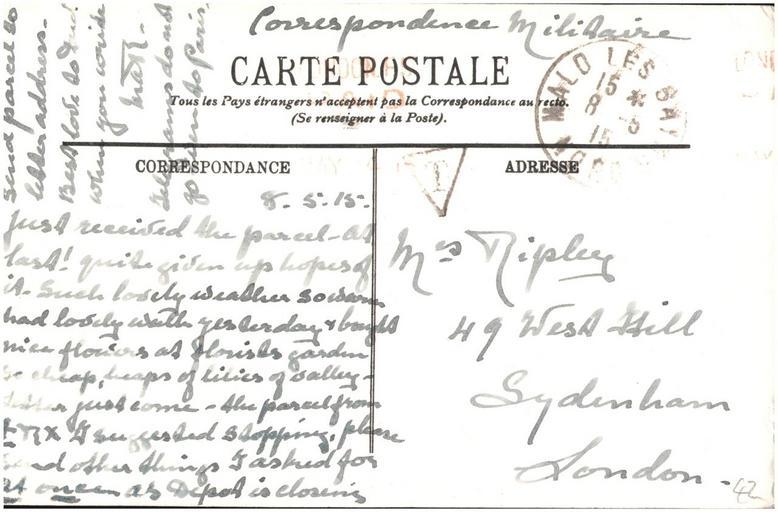 Correspondence Militaire
CARTE POSTALE
Tous les Pays étrangers n'acceptent pas la Correspondance au recto.
(Se renseigner à la Poste).
MALO LES BAINS
15
8 * 5
15
NORD
T
CORRESPONDANCE
ADRESSE
8. 5. 15.
Just received the parcel - at
last! quite given up hopes of
it. Such lovely weather so warm
had lovely walk yesterday & bought
nice flowers at florists garden
so cheap, heaps of lilies of valley -
letter just come - the parcel from
I suggested stopping, please
send other things I asked for
at once as Depot is closing
send parcel to
letter address -
Best love to
when you write
Telegrams do not
go to Paris.
Mrs Ripley
49 West Hill
Sydenham
London -
42